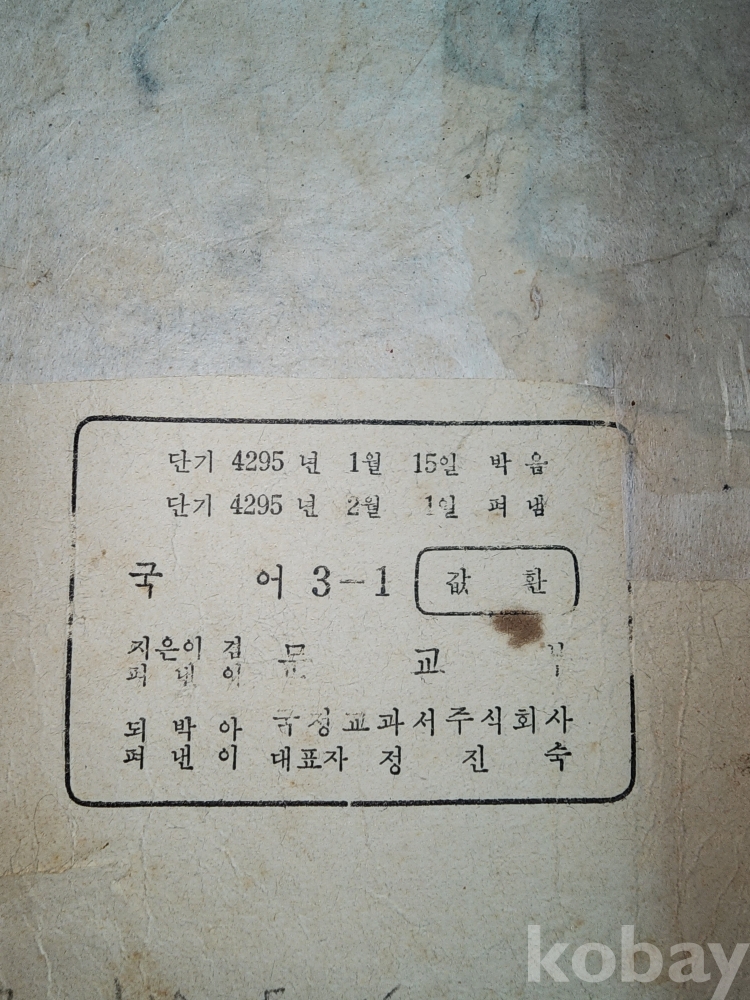 단기 4295 년 1월 15일 박음
단기 4295 년 2월 1일 펴냄
국 어 3-1 값 환
지은이 겸
펴 낸 이 문 교 부
되 박 아 국정교과서주식회사
펴 낸 이 대표자 정 진 숙
kobay